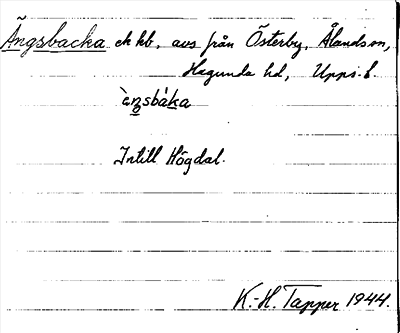 Ängsbacka ck kb, avs från Österby, Ålands sn,
Hagunda hd, Upps. l.
`eŋsbáka
Intill Högdal.
K.-H. Tapper 1944.